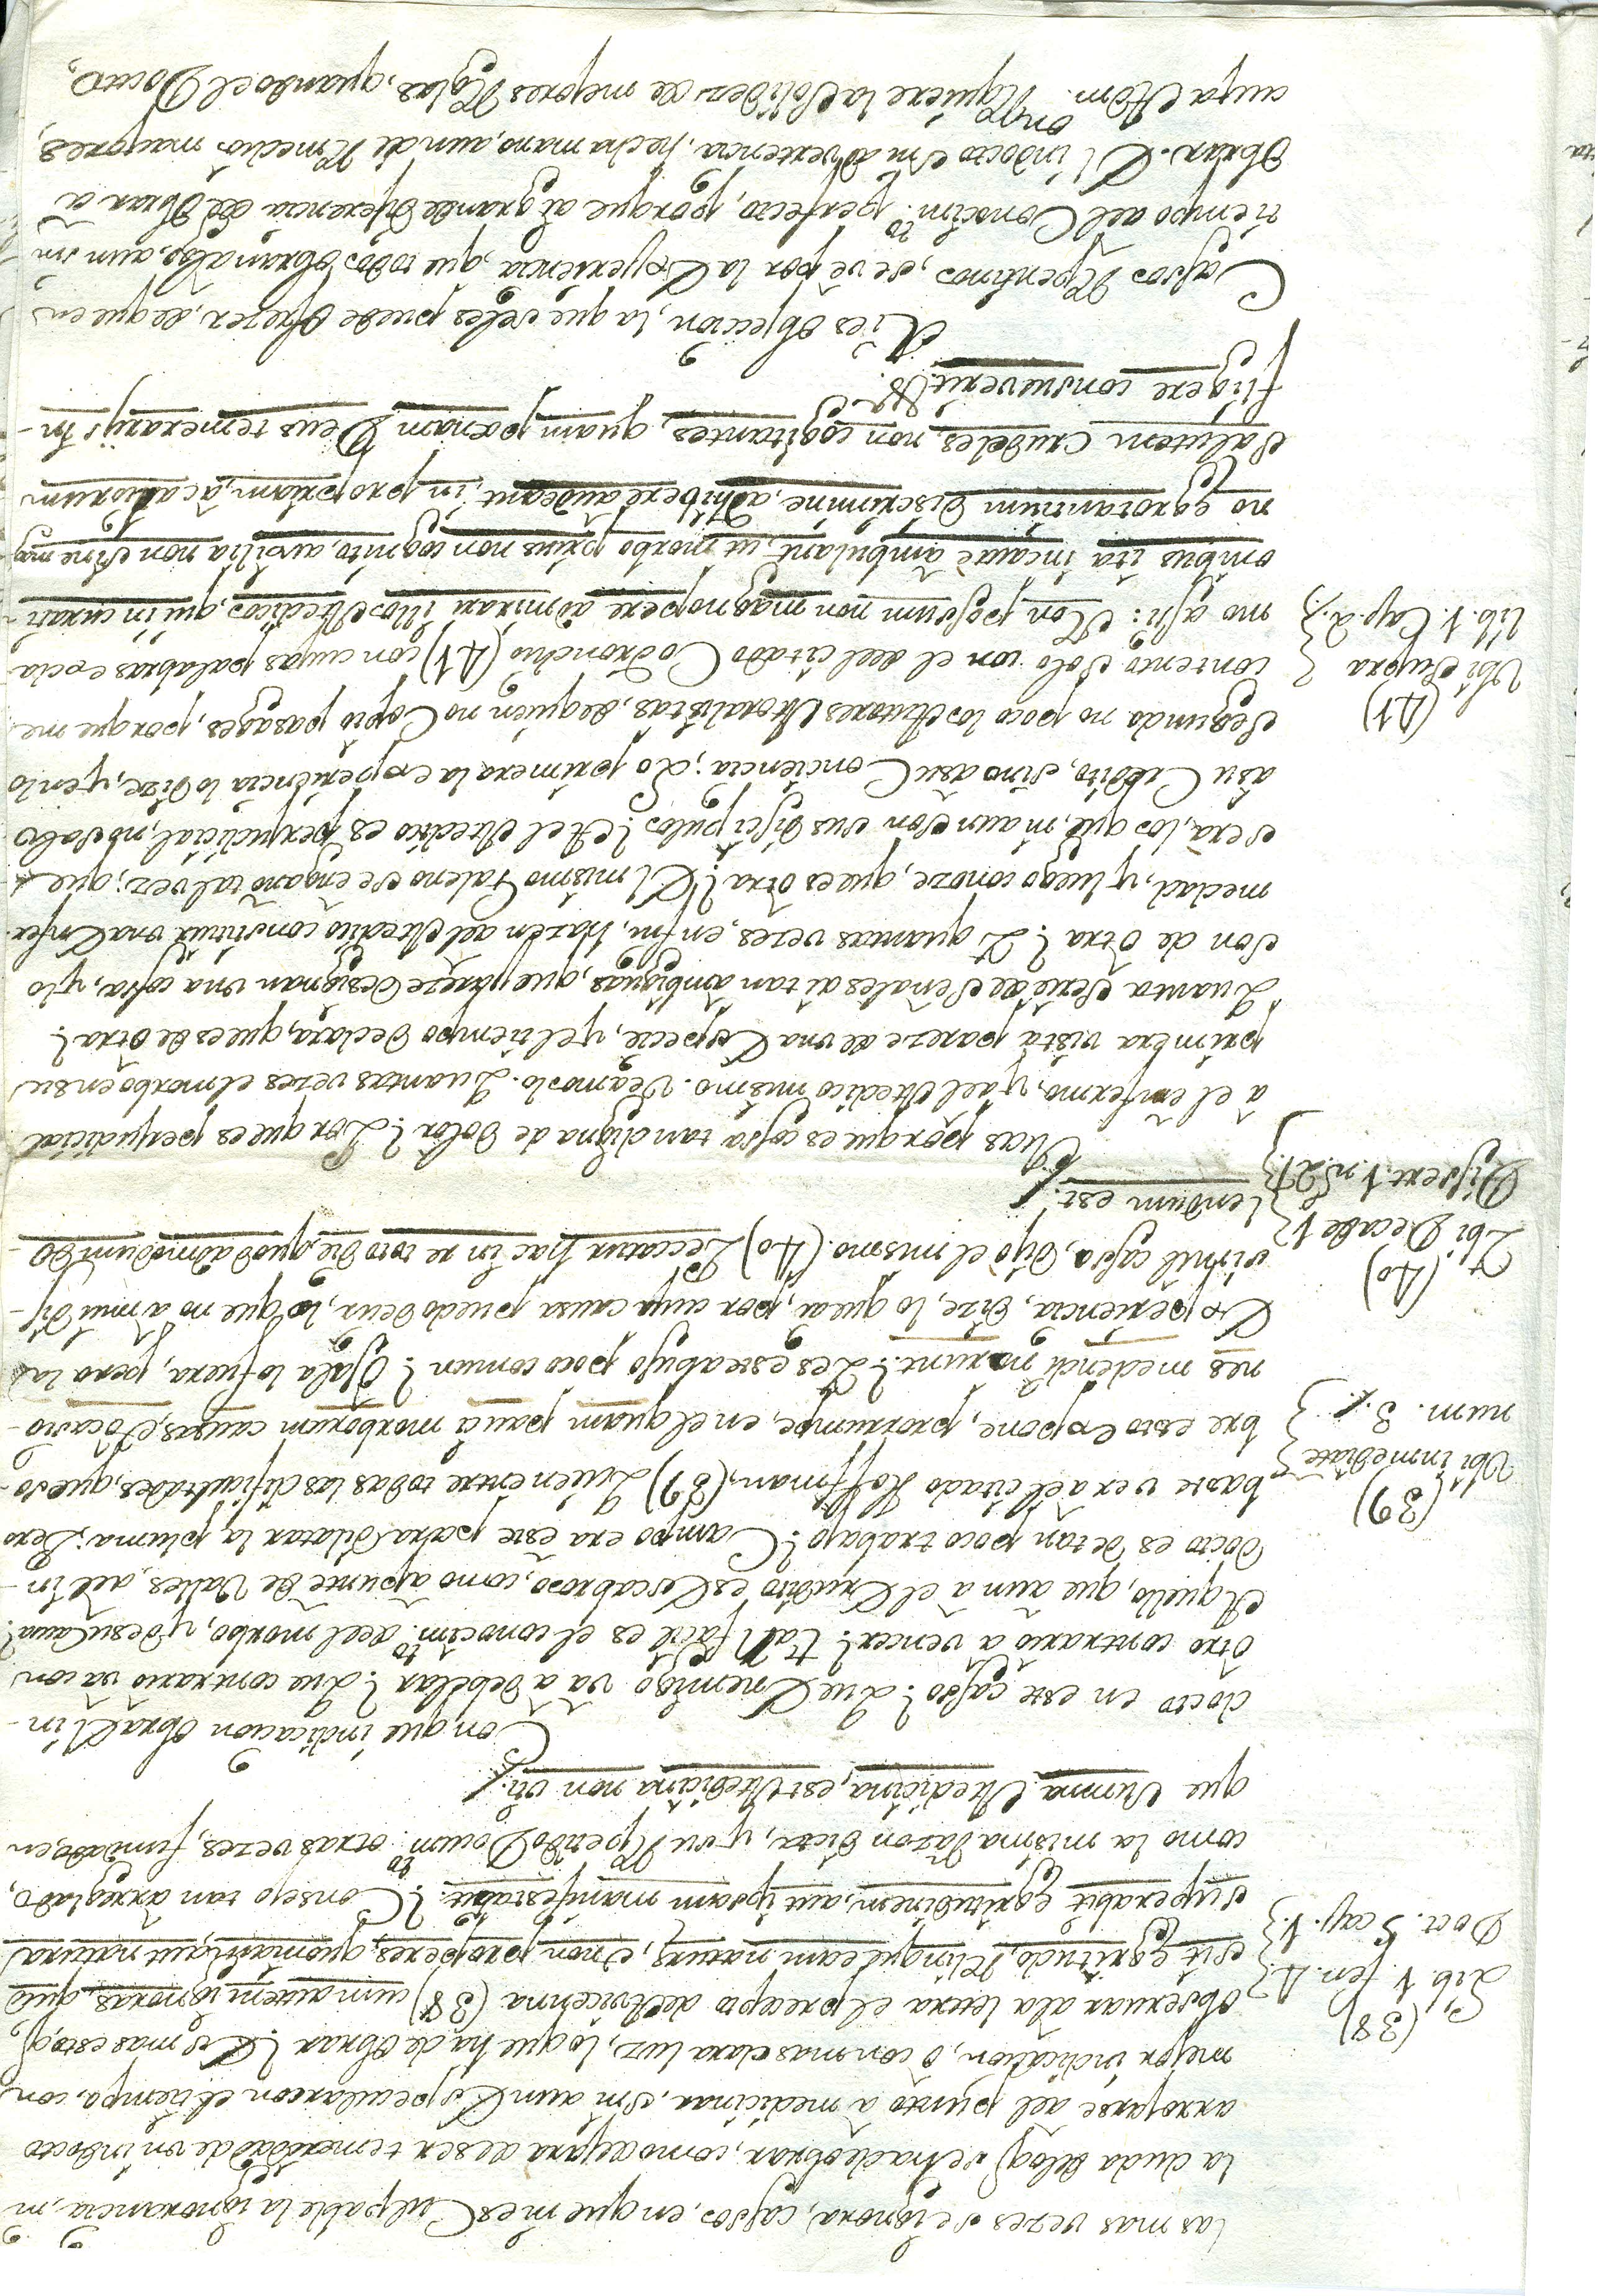 las mas vezes se ignora, casos, en que ni es Culpable la ignorancia, ni
la duda de loq. se ha de obrar, como dejara de ser temeridad de un indocto
arrojarse del punto à medicinar, sin aun Especular con el tiempo, con
mejor indicacion, ò con mas clara luz, lo que ha de obrar? Es mas esto, q
observar à la letra el precepto de Avicenna (38) cum autem ignoras, quæ
(38)
Lib. 1. fen. 4.
Doct. 5 cap. 1.
sit Egritudo, relinque eam naturæ, et non properes, quoniam, aut natura
superabit Egritudinem, aut ipsam manifestabit? Consejo tan arreglado,
como la misma razon dicta, y su repetido Docum.to otras vezes, fundado, en
que summa Medicina, est Medicina non uti.
Con que indicacion obra El in-
docto en este casso? Que Enemigo va à debelar? Que contrario va con
otro contrario à vencer? Tan facil es el conocim.to del morbo, y de su Causa?
Aquello, que aun à el Erudito es Escabroso, como apunte de Valles, àel in-
docto es de tan poco trabajo? Campo era este para dilatar la pluma; Pero
baste ver à el citado Hoffman, (39) Quien entre todas las dificultades, que so-
(39)
Ubi inmediate
num. 3.
bre esto Expone, prorrumpe, en el quam pauci morborum causas, et ocasio-
nes medendi norunt? Y es este abuso poco comun? Ojala lo fuera, pero la
Experiencia, dize, lo que ai, por cuya causa puedo decir, lo que no à mui dif-
simil casso, dijo el mismo. (40) Peccatur hac in re toto die, quod admodum do-
(40)
Ubi Decade 1
Dissert. 1. n. 27.
lendum est.
Mas porque es cossa tan digna de dolor? Porque es perjudicial
à el enfermo, y àel Medico mismo. Veamoslo. Quantas vezes el morbo en su
primera vista pareze de una Especie, y el tiempo declara, que es de otra?
Quanta serie de señales ai tan ambiguas, que pareze designan una cossa, y lo
son de otra? Y quantas vezes, en fin, hazen àel Medico constituir una Enfer-
medad, y luego conoze, que es otra? El mismo Galeno se engañò tal vez; que
serà, los que, ni aun son sus Discipulos? A el Medico es perjudicial, no solo
à su Credito, sino à su Conciencia; Lo primero la experiencia lo dize, y en lo
Segundo no poco los Autores Moralistas, de quien no Copio pasages, porque me
contento solo con el del citado Codronchio (41) con cuyas palabras excla-
(41)
Ubi Supra
lib. 1. Cap. 2.
mo assi: Non possum non magnopere admirari illos Medicos, qui in curati-
onibus ita incautè ambulant, ut morbo prius non cognito, auxilia non sine mag-
no egrotantium discrimine, adhibere audeant, in propriam, ac aliorum
Salutem crudeles, non cogitantes, quam pœnam Deus temerarijs in-
fligere consueverit &c.
Ai es objeccion, la que se les puede ofrezer, de que en
Cassos Repentinos, se vè por la Experiencia, que todos obran algo, aun sin
tiempo del Conocim.to perfecto, porque ai grande diferencia de Obrar à
Obrar. El indocto sin advertencia, hecha mano, aun de Remedios mayores,
cuya Adm.on requiere la Solidez de mejores Reglas, quando el Docto,